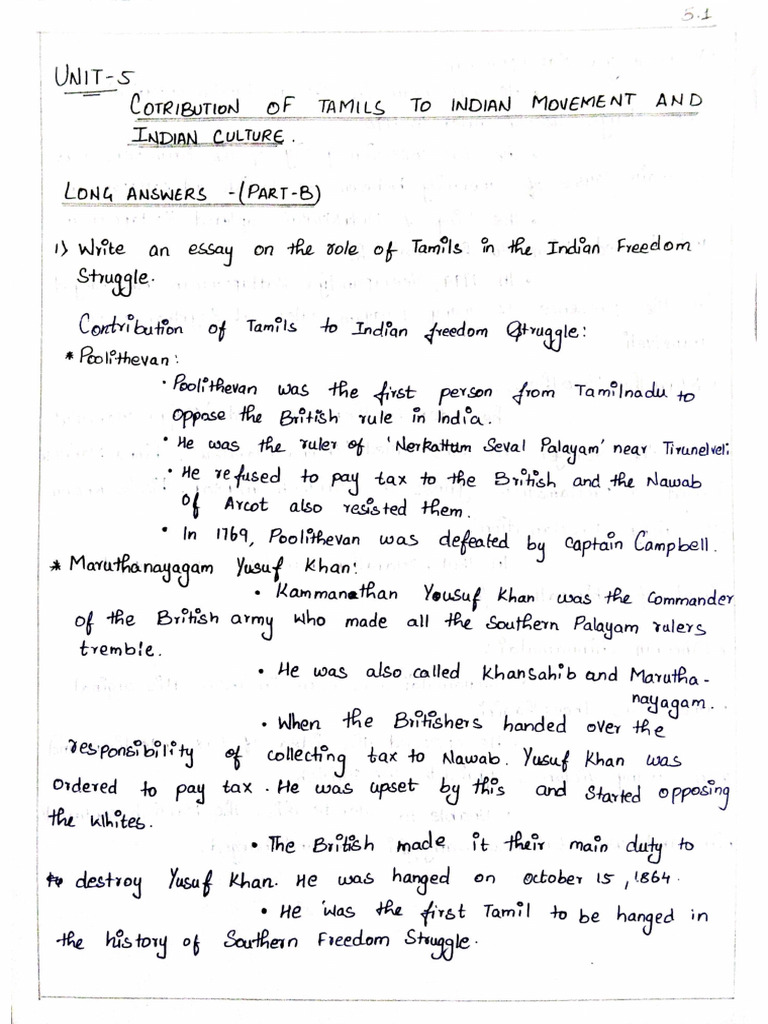 5.1
UNIT-5
COTRIBUTION OF TAMILS TO INDIAN MOVEMENT AND
INDIAN CULTURE.
LONG ANSWERS -(PART-B)
1) Write an essay on the role of Tamils in the Indian Freedom
Struggle.
Contribution of Tamils to Indian freedom Struggle:
* Poolithevan:
• Poolithevan was the first person from Tamilnadu to
oppose the British rule in India.
• He was the ruler of 'Nerkattum Seval Palayam' near Tirunelveli
• He refused to pay tax to the British and the Nawab
of Arcot also resisted them.
• In 1769, Poolithevan was defeated by captain Campbell.
* Maruthanayagam Yusuf Khan:
• Kammanathan Yousuf Khan was the commander
of the British army who made all the Southern Palayam rulers
tremble.
• He was also called Khansahib and Marutha-
nayagam.
• When the Britishers handed over the
responsibility of collecting tax to Nawab. Yusuf Khan was
ordered to pay tax. He was upset by this and started opposing
the Whites.
• The British made it their main duty to
destroy Yusuf Khan. He was hanged on october 15, 1864.
• He was the first Tamil to be hanged in
the history of Southern Freedom Struggle.